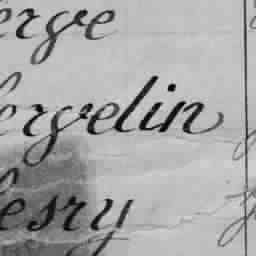 erge
ergelin
esry